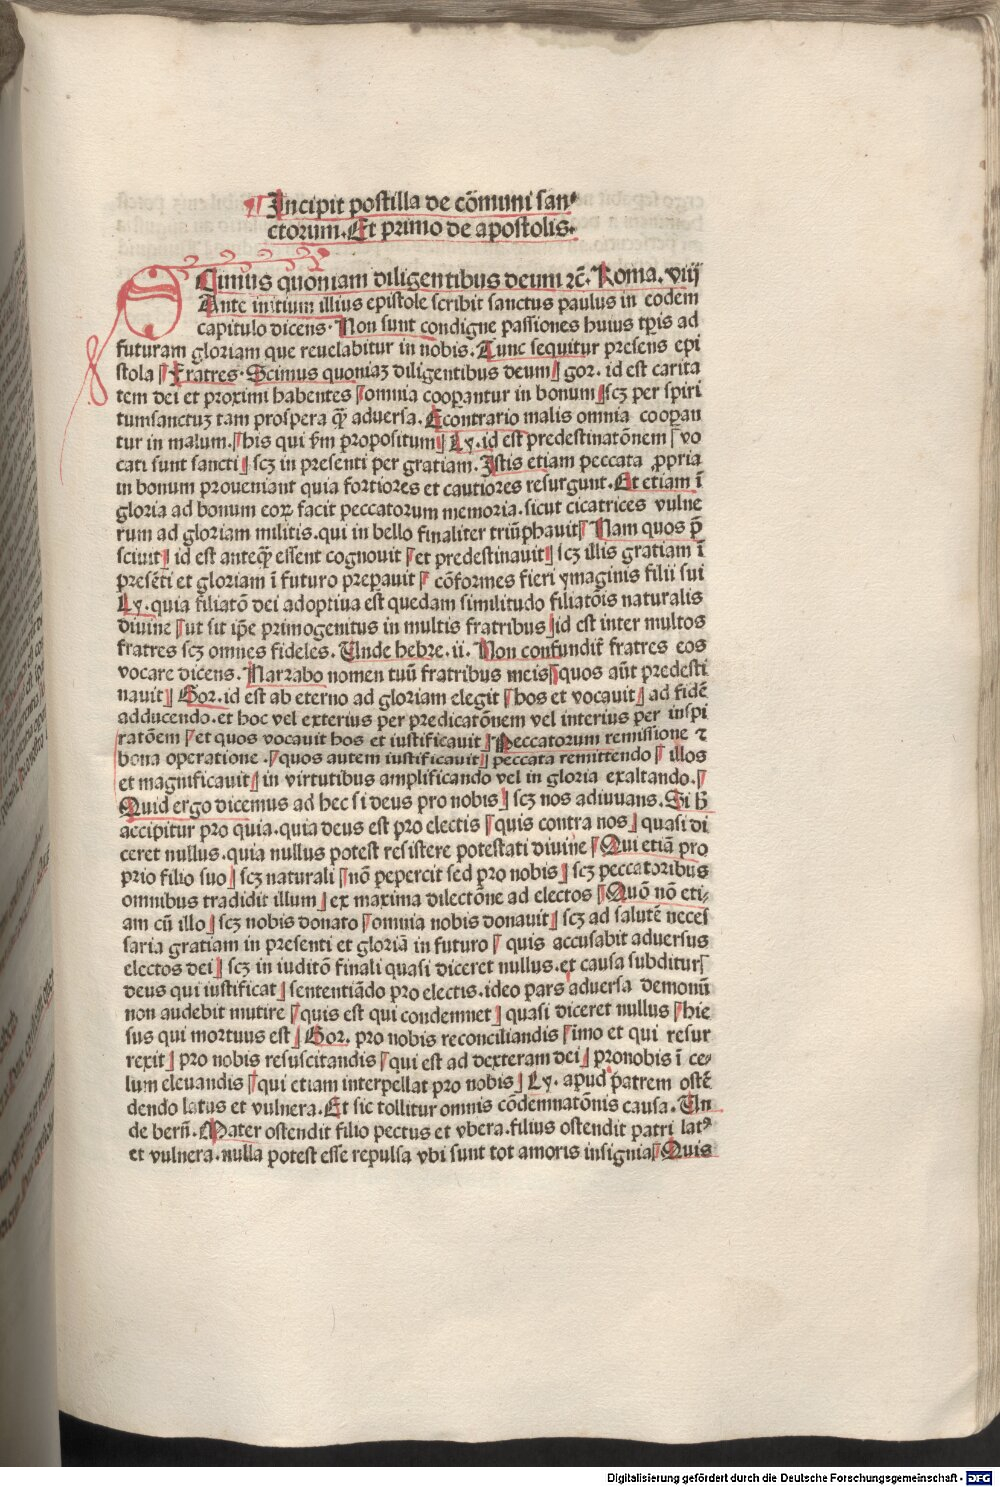 Incipit postilla de cōmuni san⸗
ctorum. Et primo de apostolis.
SCimus quoniam diligentibus deum ⁊c̄. Roma. viij
Ante initium illius epistole scribit sanctus paulus in eodem
capitulo dicens. Non sunt condigne passiones huius tp̄is ad
futuram gloriam que reuelabitur in nobis. Tunc sequitur presens epi
stola Fratres. Scimus quoniaʒ diligentibus deum gor. id est carita
tem dei et proximi habentes omnia cooꝑantur in bonum scʒ per spiri
tumsanctuʒ tam prospera qꝫ̄ aduersa. Econtrario malis omnia cooꝑan
tur in malum. his qui ẜm ꝓpositum Ly. id est predestinatōnem vo
cati sunt sancti scʒ in presenti per gratiam. Istis etiam peccata ꝓpria
in bonum proueniant quia fortiores et cautiores resurgunt. Et etiam ī
gloria ad bonum eoꝝ facit peccatorum memoria. sicut cicatrices vulne
rum ad gloriam militis. qui in bello finaliter triūphauit Nam quos p̄
sciuit id est anteqꝫ̄ essent cognouit et predestinauit scʒ illis gratiam ī
presēti et gloriam ī futuro preꝑauit cōformes fieri ymaginis filii sui
Ly. quia filiatō dei adoptiua est quedam similitudo filiatōis naturalis
diuine ut sit ip̄e primogenitus in multis fratribus id est inter multos
fratres scʒ omnes fideles. Unde hebre. ii. Non confundit᷑ fratres eos
vocare dicens. Narrabo nomen tuū fratribus meis quos aūt predesti
nauit Gor. id est ab eterno ad gloriam elegit hos et vocauit ad fidē
adducendo. et hoc vel exterius per predicatōnem vel interius per inspi
ratōem et quos vocauit hos et iustificauit Peccatorum remissione ⁊
bona operatione. quos autem iustificauit peccata remittendo illos
et magnificauit in virtutibus amplificando vel in gloria exaltando.
Quid ergo dicemus ad hec si deus pro nobis scʒ nos adiuuans. Si h̄
accipitur pro quia. quia deus est pro electis quis contra nos quasi di
ceret nullus. quia nullus potest resistere potestati diuine Qui etiā pro
prio filio suo scʒ naturali nō pepercit sed pro nobis scʒ peccatoribus
omnibus tradidit illum ex maxima dilectōne ad electos Quō nō eti⸗
am cū illo scʒ nobis donato omnia nobis donauit scʒ ad salutē neces
saria gratiam in presenti et gloriā in futuro quis accusabit aduersus
electos dei scʒ in iuditō finali quasi diceret nullus. et causa subditur
deus qui iustificat sententiādo pro electis. ideo pars aduersa demonū
non audebit mutire quis est qui condemnet quasi diceret nullus hie
sus qui mortuus est Gor. pro nobis reconciliandis imo et qui resur
rexit pro nobis resuscitandis qui est ad dexteram dei pronobis ī ce⸗
lum eleuandis qui etiam interpellat pro nobis Ly. apud patrem ostē
dendo latus et vulnera. Et sic tollitur omnis cōdemnatōnis causa. Un
de berñ. Mater ostendit filio pectus et vbera. filius ostendit patri latꝰ
et vulnera. nulla potest esse repulsa vbi sunt tot amoris insignia Quis
Digitalisierung gefördert durch die Deutsche Forschungsgemeinschaft - DFG